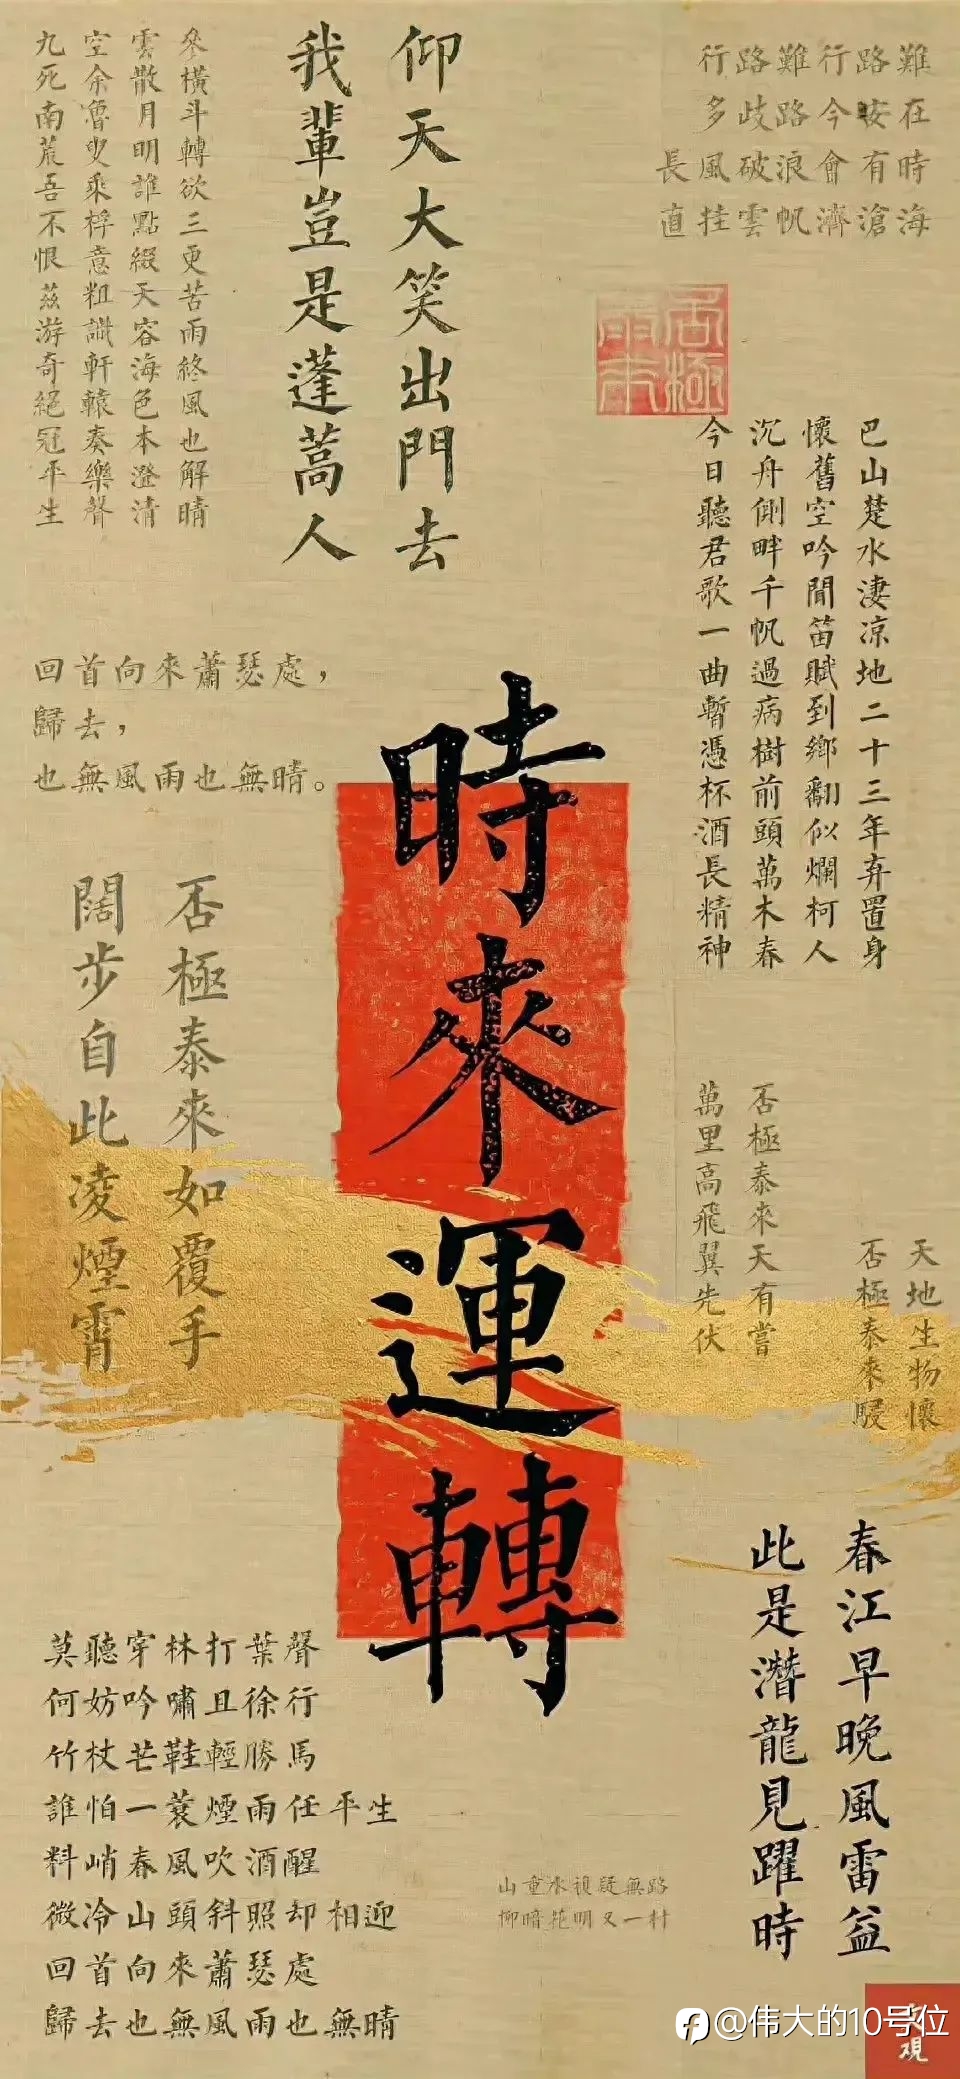 難在時海
路安有滄
行今會濟
難路浪帆
路歧破雲
行多風挂
長直
仰天大笑出門去
我輩豈是蓬蒿人
參橫斗轉欲三更苦雨終風也解晴
雲散月明誰點綴天容海色本澄清
空余魯叟乘桴意粗識軒轅奏樂聲
九死南荒吾不恨茲游奇絕冠平生
否極
巴山楚水淒涼地二十三年弃置身
懷舊空吟聞笛賦到鄉翻似爛柯人
沉舟側畔千帆過病樹前頭萬木春
今日聽君歌一曲暫憑杯酒長精神
回首向來蕭瑟處，
歸去，
也無風雨也無晴。
時來運轉
否極泰來如覆手
闊步自此凌煙霄
否極泰來天有嘗
萬里高飛翼先伏
天地生物懷
否極泰來
春江早晚風雷益
此是潛龍見躍時
莫聽穿林打葉聲
何妨吟嘯且徐行
竹杖芒鞋輕勝馬
誰怕一蓑煙雨任平生
料峭春風吹酒醒
微冷山頭斜照却相迎
回首向來蕭瑟處
歸去也無風雨也無晴
山重水複疑無路
柳暗花明又一村
@伟大的10号位
觀